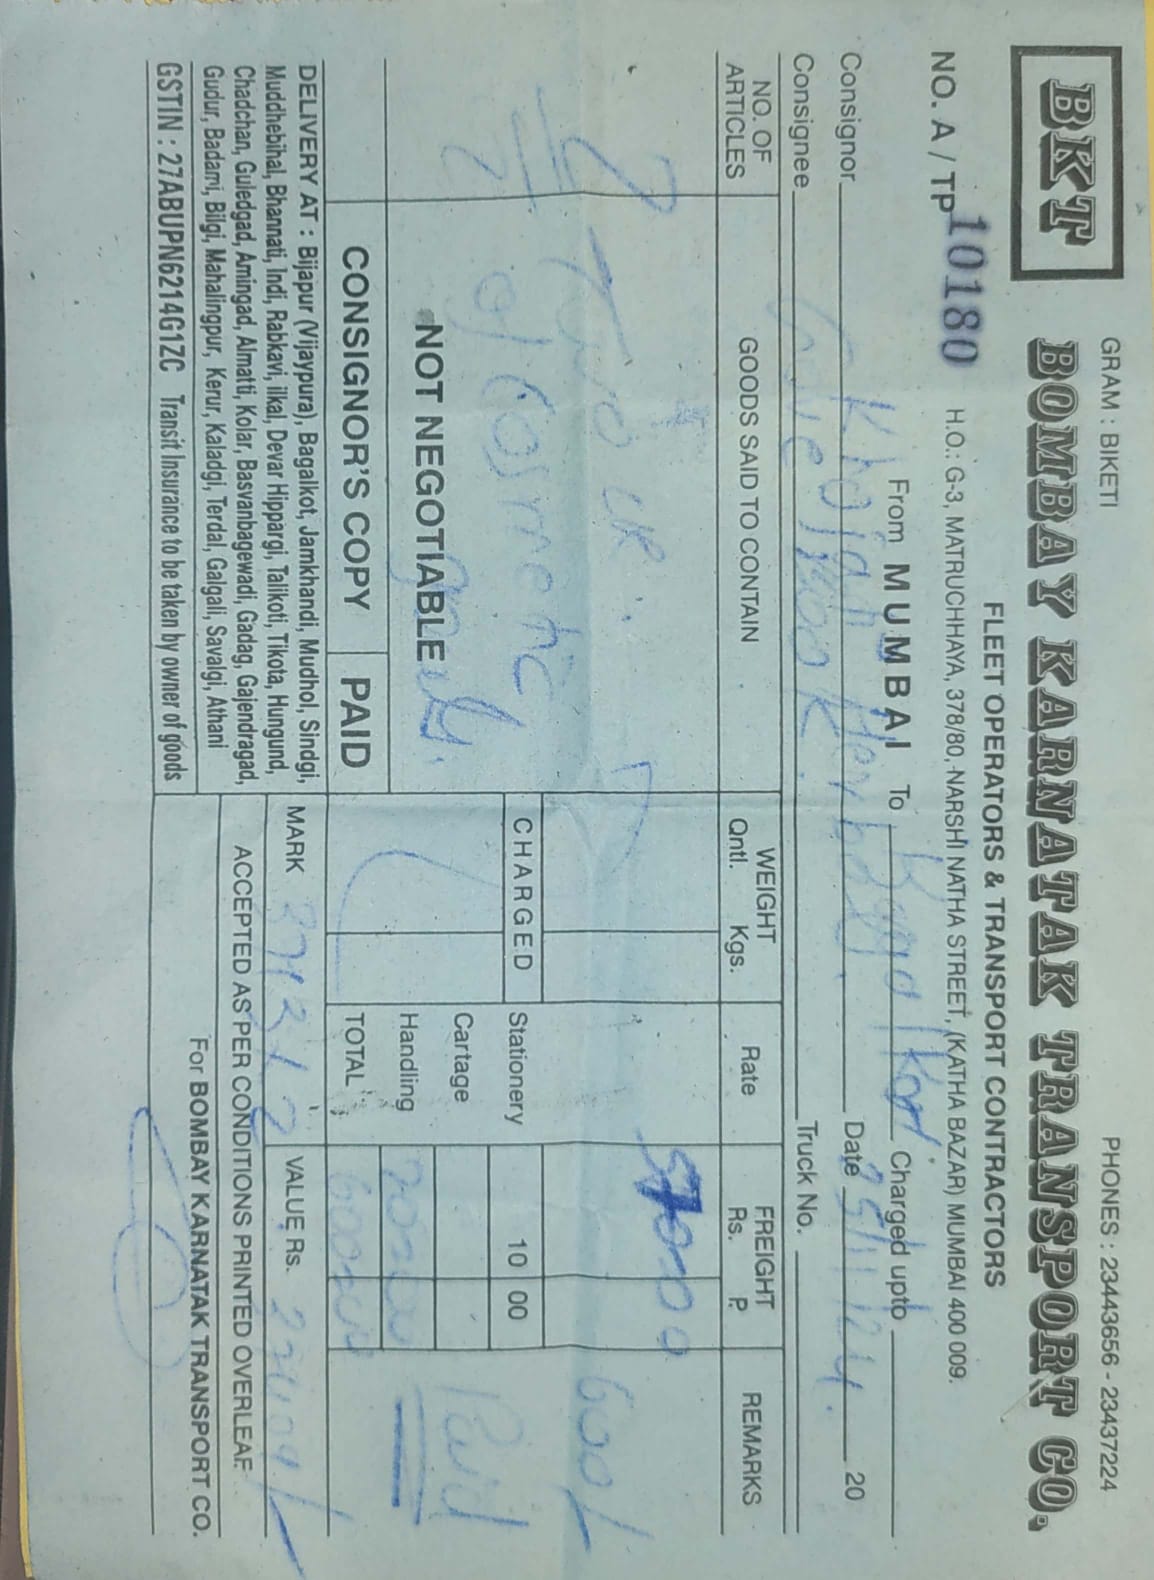 GRAM : BIKETI PHONES : 23443656 - 23437224
BKT BOMBAY KARNATAK TRANSPORT CO.
FLEET OPERATORS & TRANSPORT CONTRACTORS
H.O.: G-3, MATRUCHHAYA, 378/80, NARSHI NATHA STREET, (KATHA BAZAR) MUMBAI 400 009.
NO. A / TP 10180
From MUMBAI To Charged upto
Consignor Date 20
Consignee Truck No.
NO. OF ARTICLES GOODS SAID TO CONTAIN WEIGHT Qntl. Kgs. Rate FREIGHT Rs. P. REMARKS
600/-
CHARGED Stationery 10 00
of Cosmetic Cartage Paid
NOT NEGOTIABLE Handling
CONSIGNOR'S COPY PAID TOTAL
DELIVERY AT : Bijapur (Vijaypura), Bagalkot, Jamkhandi, Mudhol, Sindgi,
Muddhebihal, Bhannati, Indi, Rabkavi, ilkal, Devar Hippargi, Talikoti, Tikota, Hungund,
Chadchan, Guledgad, Amingad, Almatti, Kolar, Basvanbagewadi, Gadag, Gajendragad,
Gudur, Badami, Bilgi, Mahalingpur, Kerur, Kaladgi, Terdal, Galgali, Savalgi, Athani
MARK VALUE Rs.
ACCEPTED AS PER CONDITIONS PRINTED OVERLEAF
For BOMBAY KARNATAK TRANSPORT CO.
GSTIN : 27ABUPN6214G1ZC Transit Insurance to be taken by owner of goods